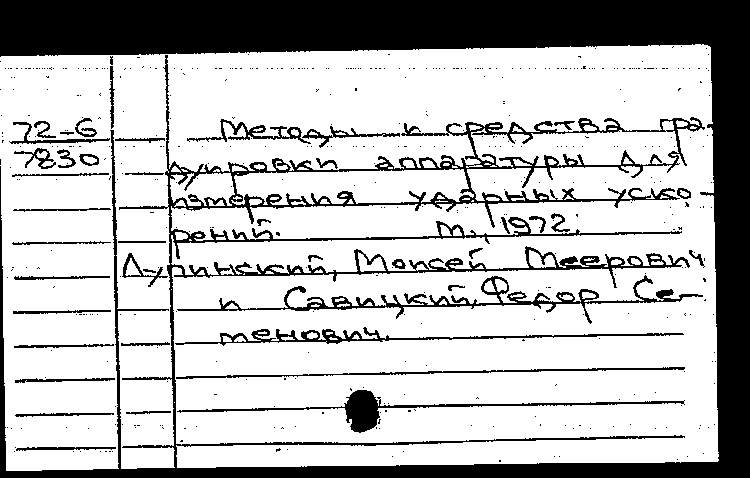 72-6 Методы и средства гра-
7830 дуировки аппаратуры для
измерения ударных уско-
рений. М., 1972.
Лупинский, Моисей Меерович
и Савицкий, Федор Се-
менович.